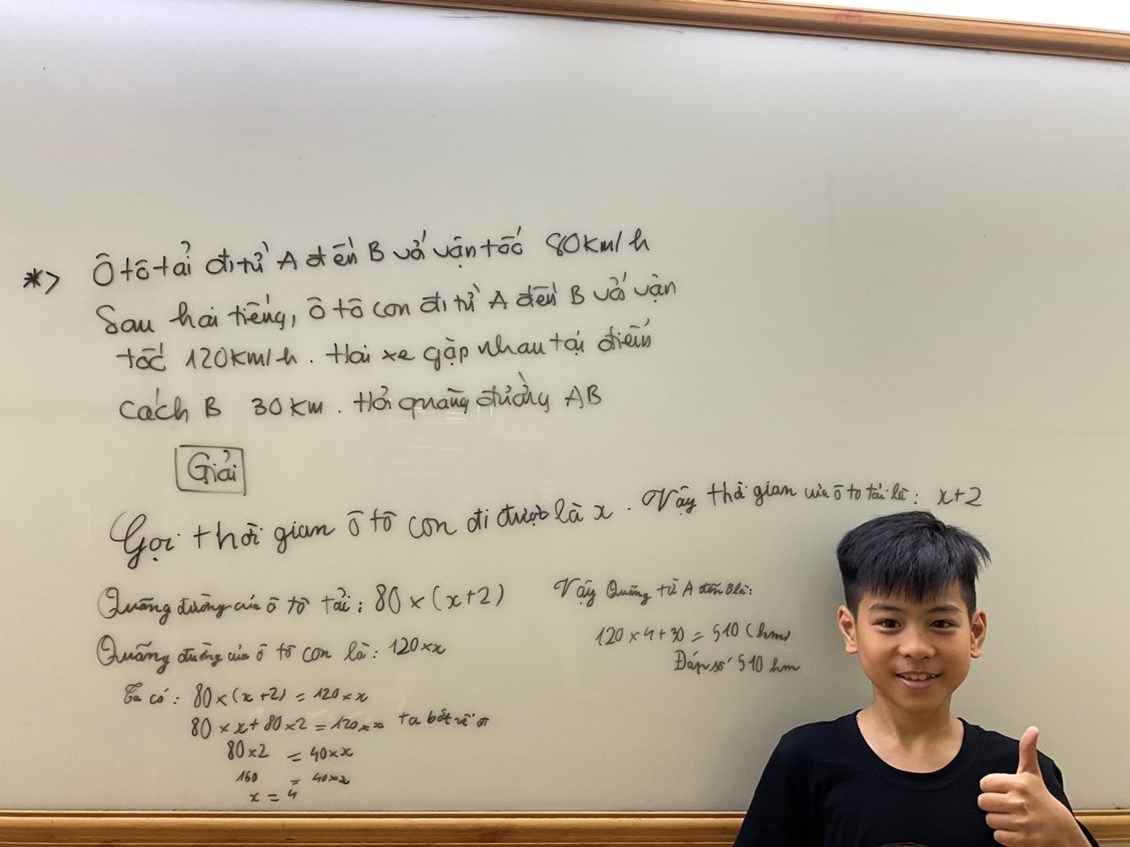 *> Ô tô tải đi từ A đến B với vận tốc 80km/h
Sau hai tiếng, ô tô con đi từ A đến B với vận
tốc 120km/h. Hai xe gặp nhau tại điểm
cách B 30 km. Hỏi quãng đường AB
Giải
Gọi thời gian ô tô con đi được là x. Vậy thời gian của ô tô tải là: x+2
Quãng đường của ô tô tải: 80 × (x+2)
Quãng đường của ô tô con là: 120×x
Ta có: 80×(x+2) = 120×x
80 × x + 80×2 = 120×x ta bớt vế đi
80×2 = 40×x
160 = 40×x
x = 4
Vậy Quãng từ A đến B là:
120×4+30 = 510 (km)
Đáp số 510 km